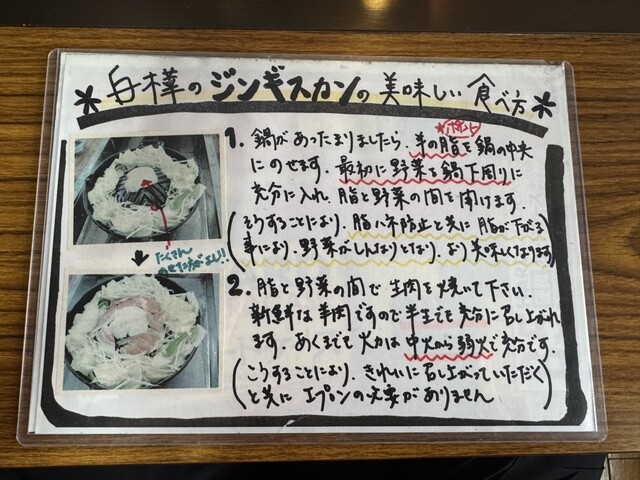 *白樺のジンギスカンの美味しい食べ方*
ポイント
1. 鍋があったまりましたら、羊の脂を鍋の中央
にのせます。最初に野菜を鍋下周りに
充分に入れ、脂と野菜の間を開けます。
(そうすることにより、脂ハネ防止と共に脂が下がる
事により、野菜がしんなりとなり、より美味しくなります)
たくさん
のせた方がよし!!
2. 脂と野菜の間で生肉を焼いて下さい。
新鮮な羊肉ですので半生でも充分に召し上がれ
ます。あくまでも火力は中火から弱火で充分です。
(こうすることにより、きれいに召し上がっていただく
と共にエプロンの必要がありません)